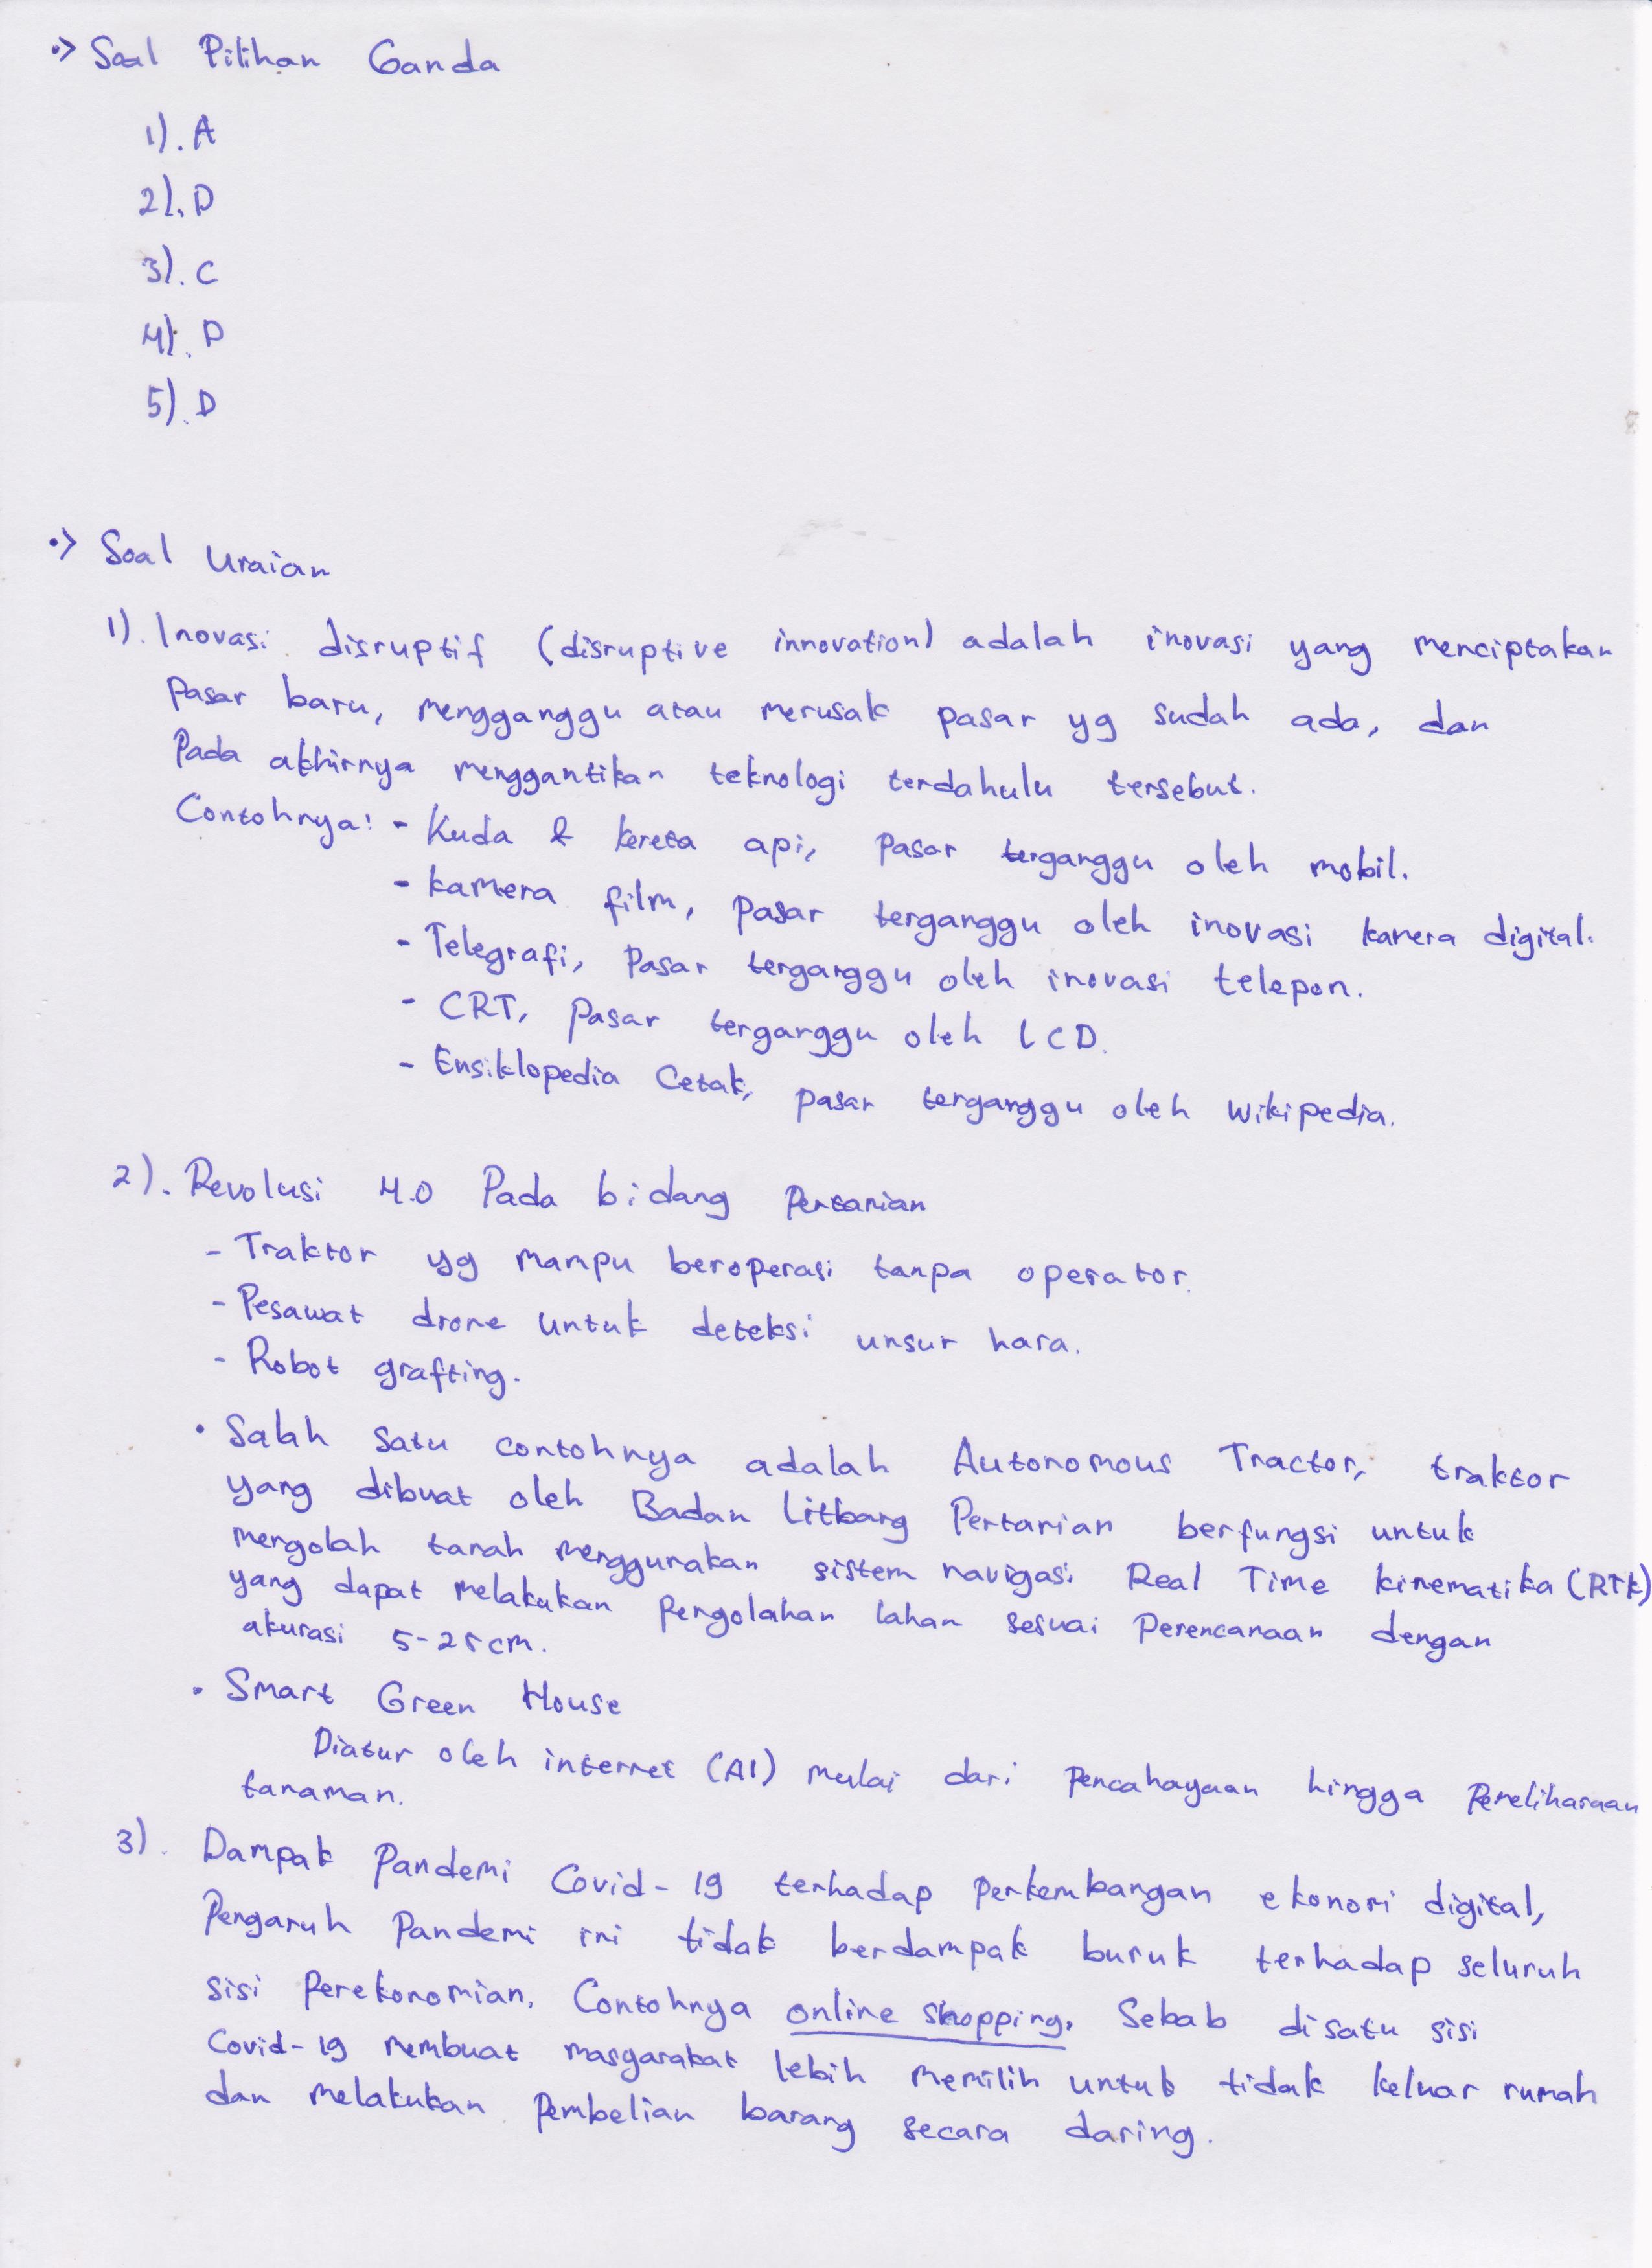 •> Soal Pilihan Ganda
1). A
2). D
3). C
4). D
5). D
•> Soal Uraian
1). Inovasi disruptif (disruptive innovation) adalah inovasi yang menciptakan
Pasar baru, mengganggu atau merusak pasar yg sudah ada, dan
Pada akhirnya menggantikan teknologi terdahulu tersebut.
Contohnya: - Kuda & kereta api, Pasar terganggu oleh mobil.
- kamera film, pasar terganggu oleh inovasi kamera digital.
- Telegrafi, Pasar terganggu oleh inovasi telepon.
- CRT, Pasar terganggu oleh LCD.
- Ensiklopedia Cetak, pasar terganggu oleh wikipedia.
2). Revolusi 4.0 Pada bidang Pertanian
- Traktor yg mampu beroperasi tanpa operator.
- Pesawat drone untuk deteksi unsur hara.
- Robot grafting.
• Salah satu contohnya adalah Autonomous Tractor, traktor
yang dibuat oleh Badan Litbang Pertanian berfungsi untuk
mengolah tanah menggunakan sistem navigasi Real Time kinematika (RTK)
yang dapat melakukan Pengolahan lahan sesuai Perencanaan dengan
akurasi 5-25 cm.
• Smart Green House
Diatur oleh internet (AI) mulai dari Pencahayaan hingga Pemeliharaan
tanaman.
3). Dampak Pandemi Covid-19 terhadap Perkembangan ekonomi digital,
Pengaruh Pandemi ini tidak berdampak buruk terhadap seluruh
sisi Perekonomian. Contohnya online shopping. Sebab disatu sisi
Covid-19 membuat masyarakat lebih memilih untuk tidak keluar rumah
dan melakukan Pembelian barang secara daring.